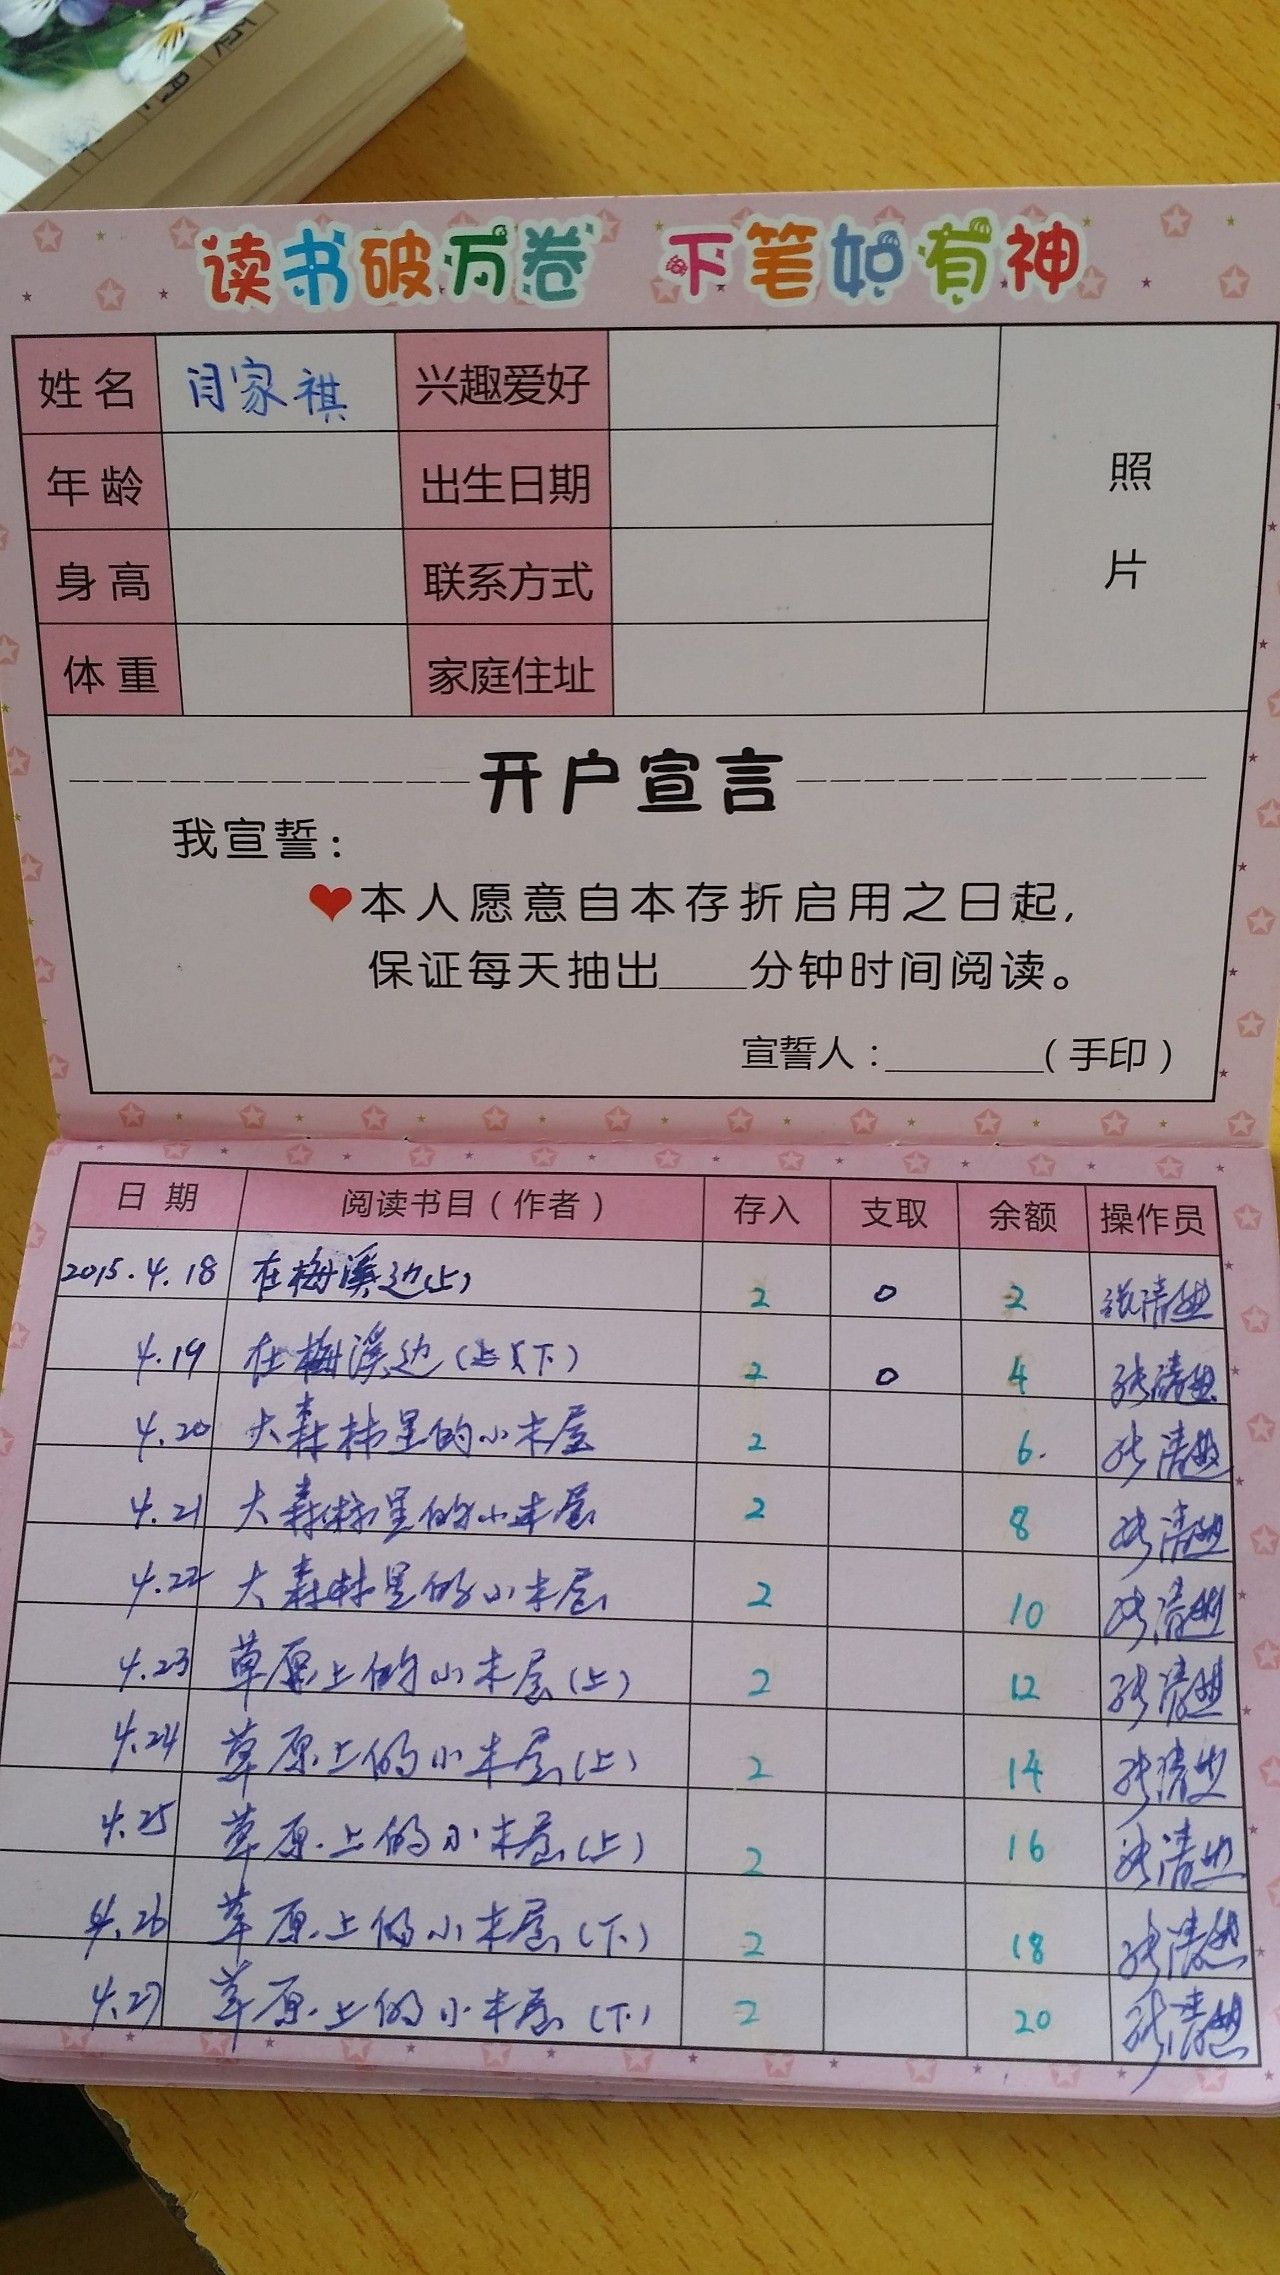 读书破万卷 下笔如有神
姓名 闫家祺 兴趣爱好
照
年龄 出生日期
片
身高 联系方式
体重 家庭住址
开户宣言
我宣誓：
本人愿意自本存折启用之日起，
保证每天抽出____分钟时间阅读。
宣誓人：________（手印）
日期 阅读书目（作者） 存入 支取 余额 操作员
2015.4.18 在梅溪边(上) 2 0 2
4.19 在梅溪边(上)(下) 2 0 4
4.20 大森林里的小木屋 2 6.
4.21 大森林里的小木屋 2 8
4.22 大森林里的小木屋 2 10
4.23 草原上的小木屋(上) 2 12
4.24 草原上的小木屋(上) 2 14
4.25 草原上的小木屋(上) 2 16
4.26 草原上的小木屋(下) 2 18
4.27 草原上的小木屋(下) 2 20